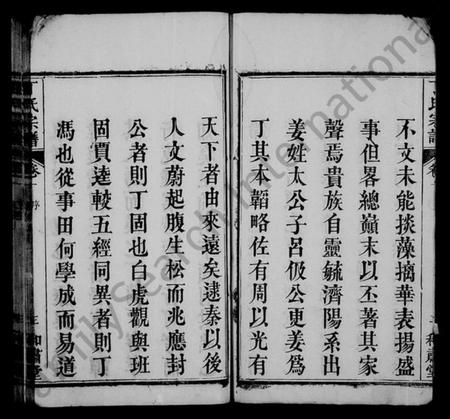 不文未能掞藻摛華表揚盛
事但畧總巔末以丕著其家
聲焉貴族自靈毓濟陽系出
姜姓太公子呂伋公更姜為
丁其本韜略佐有周以光有
天下者由來遠矣逮秦以後
人文蔚起腹生松而兆應封
公者則丁固也白虎觀與班
固賈逵較五經同異者則丁
馮也從事田何學成而易道
丁氏宗譜
序
FamilySearch International